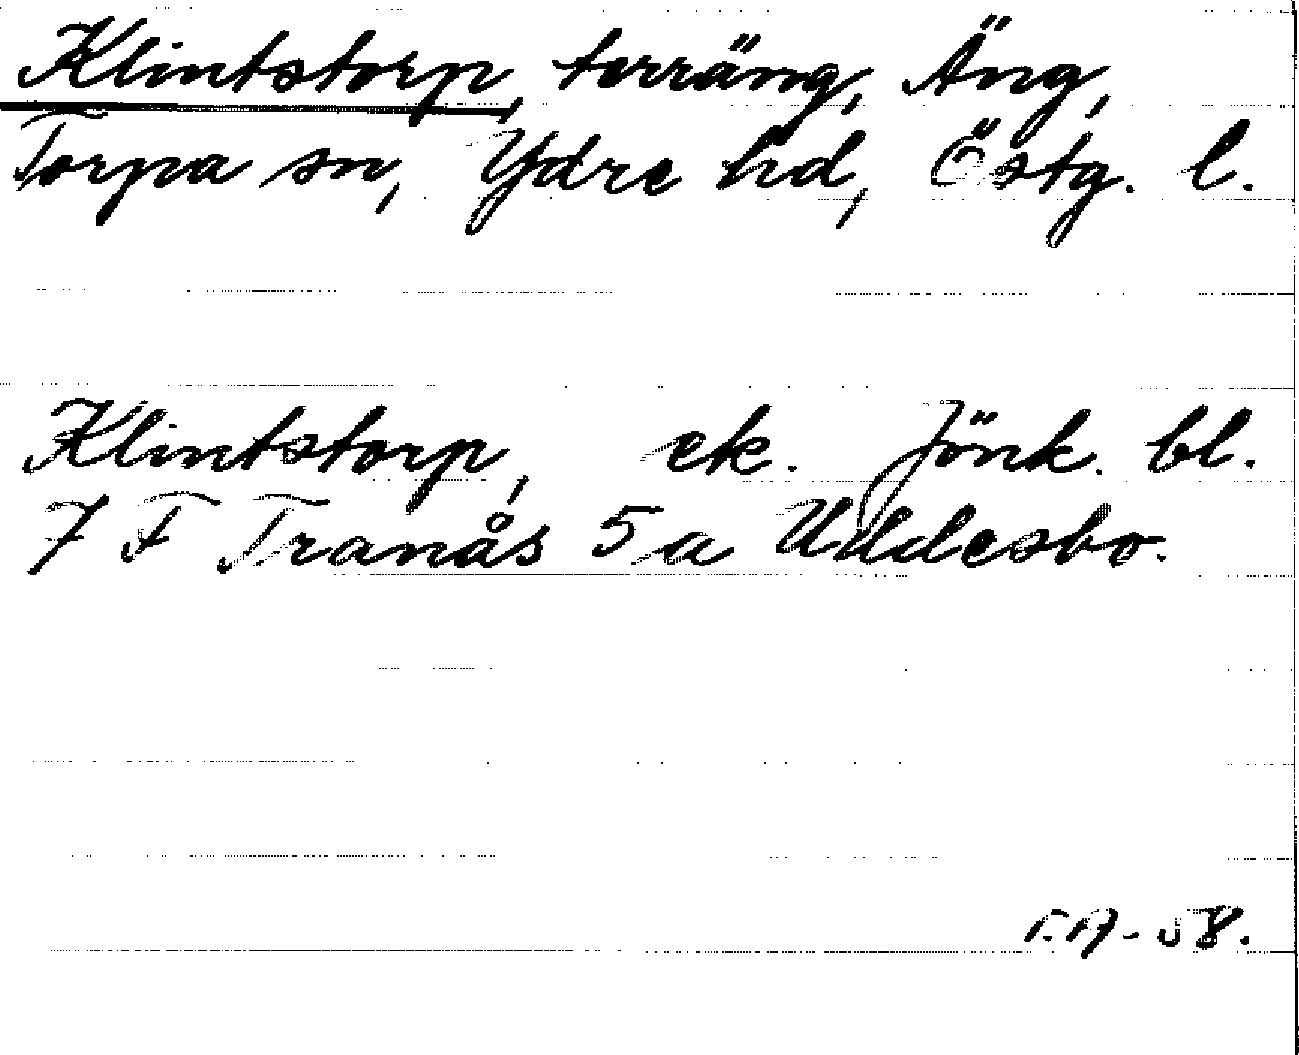 Klintstorp, terräng, Äng,
Torpa sn, Ydre hd, Östg. l.
Klintstorp, ek. Jönk. bl.
7 F Tranås 5 a Uddesbo.
T.A-58.